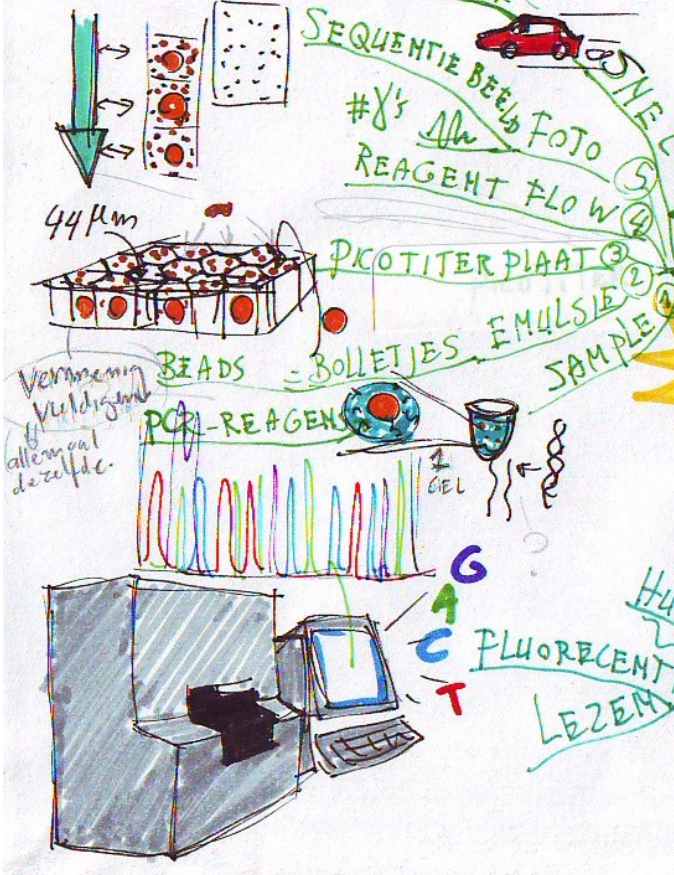 SNEL
SEQUENTIE BEELD
#γ's
FOTO 5
REAGENT FLOW 4
44 μm
PICOTITERPLAAT 3
EMULSIE 2
SAMPLE 1
BEADS = BOLLETJES
PCR-REAGENS
Vermenig
vuldigen
allemaal
dezelfde.
1
CEL
?
G
A
C
T
HU
FLUORECENT
LEZEN